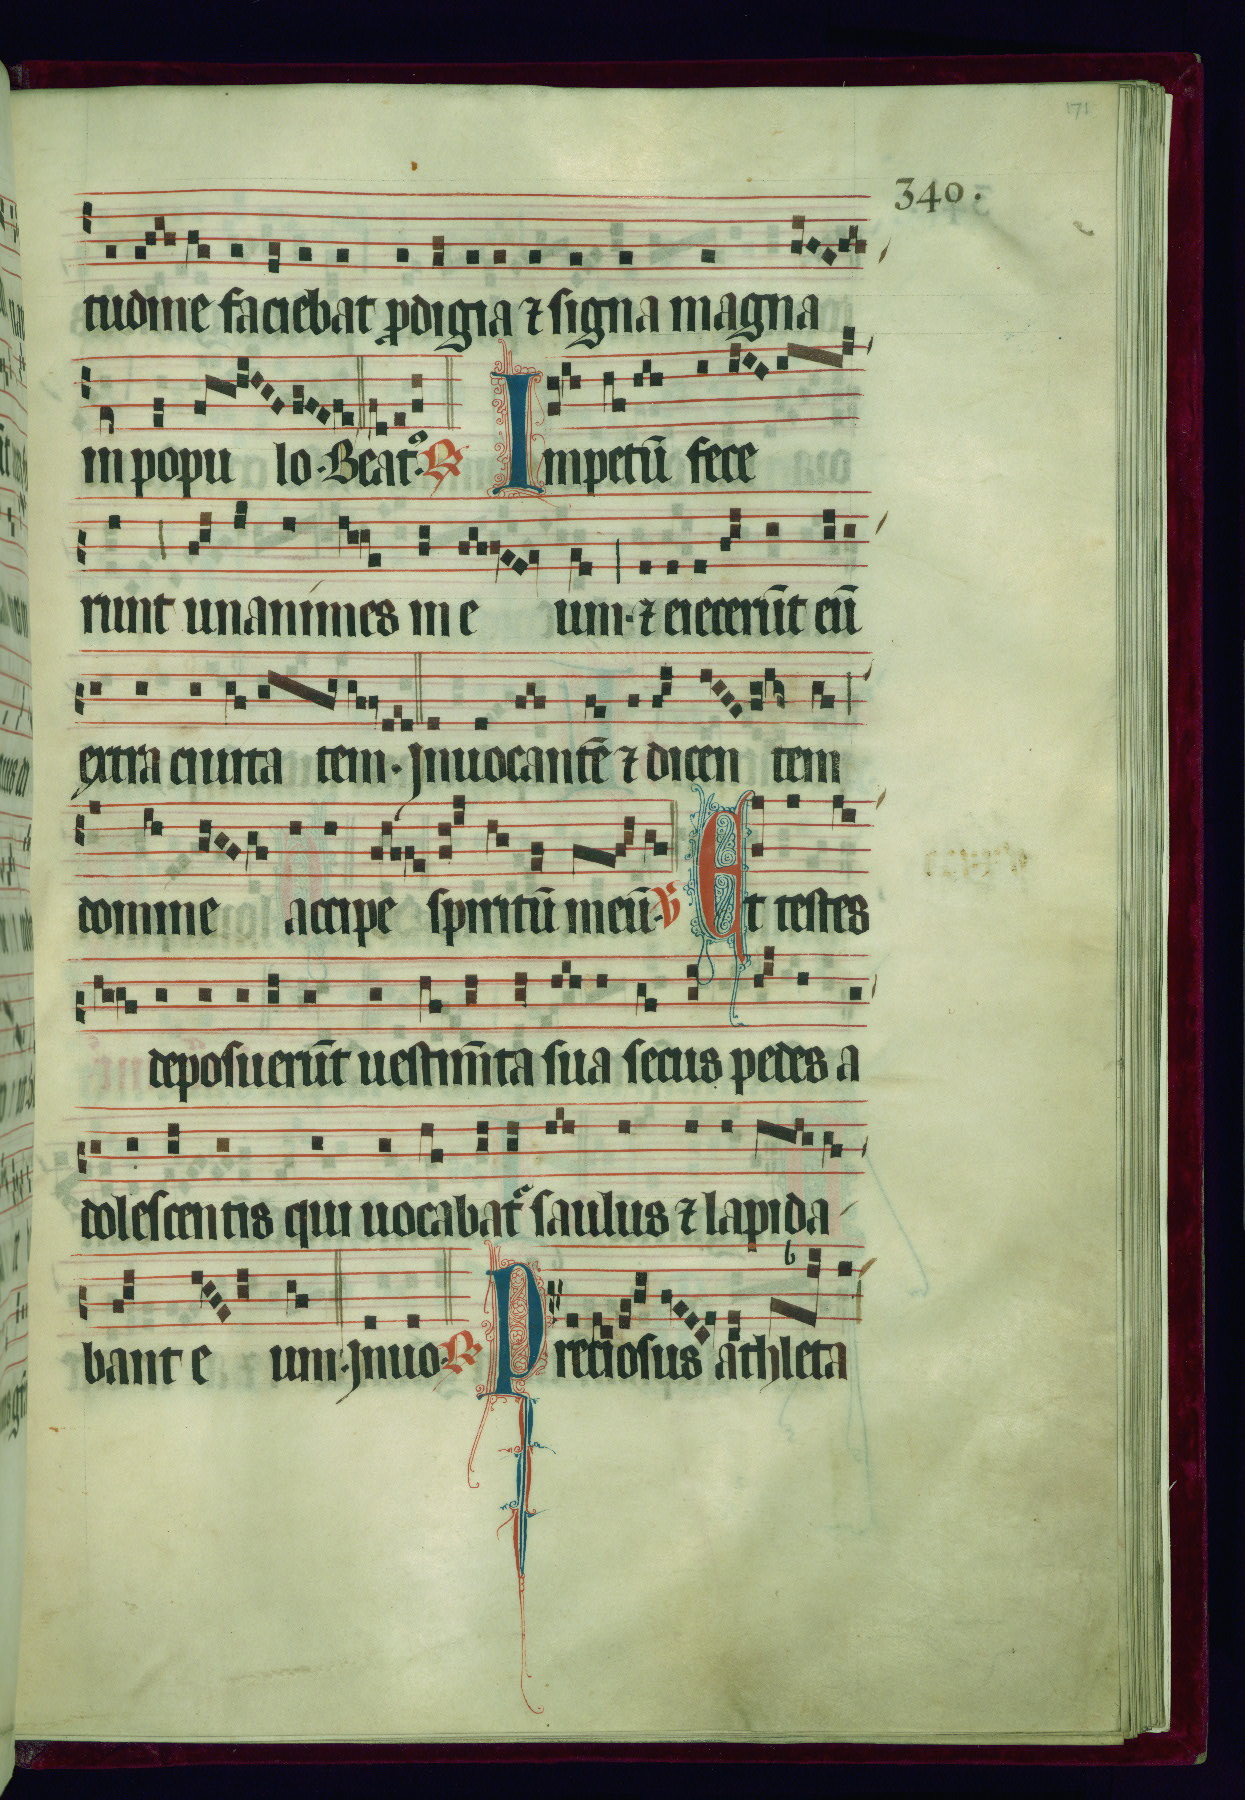 171
340.
tudine faciebat ꝓdigia ⁊ signa magna
in popu lo. Beatꝰ. R̷ Impetū fece
runt unanimes in e um. ⁊ eiecerūt eū
extra ciuita tem. Inuocantē ⁊ dicen tem
domine accipe spiritū meū. V̷ Et testes
deposuerūt uestim̄ta sua secus pedes a
dolescentis qui uocabat᷑ saulus ⁊ lapida
bant e um. Inuo. R̷ Preciosus athleta